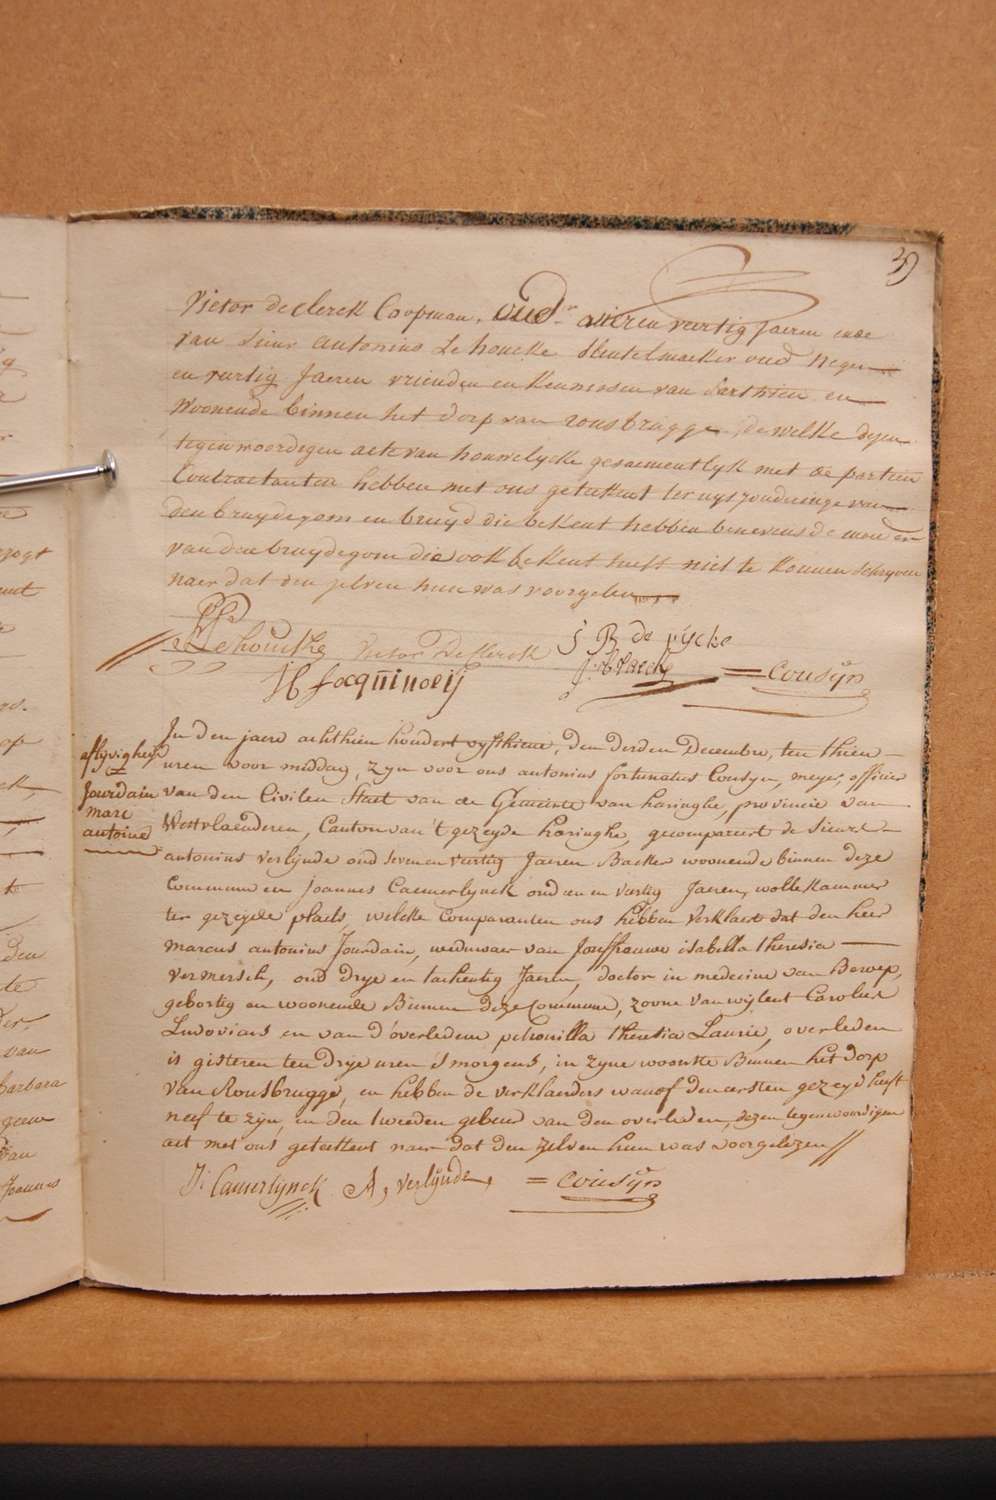 39
Victor declerck Coopman, oud vieren veertig Jaeren ende
van Sieur antonius Lehoucke Sleutelmaeker oud negen
en veertig Jaeren vrienden en Kennessen van Parthien en
Woonende binnen het dorp van rousbrugge, de welke dezen
tegenwoordigen acte van houwelycke gesaementlyk met de partien
Contractanten hebben met ons geteekent ter uyszonderinge van
den bruydegom en bruyd die bekent hebben benevens de moeder
van den bruydegom die ook bekent heeft niet te konnen Schryven
naer dat den zelven hun was voorgelezen
Lehoucke Victor Declerck J B de rycke
cousÿn
Jacquinoeij
aflyvigheyd
Jourdain
marc
antoine
In den jaere achthien hondert vyfthiene, den derden Decembre, ten thien
uren voor middag, zyn voor ons antonius fortunatus Cousyn, meyer, officier
van den Civilen Staet van de Gemeente van haringhe, provincie van
Westvlaenderen, Canton van 't gezeyde haringhe, gecompareert de Sieurs
antonius verlynde oud seven en veertig Jaeren Backer woonende binnen deze
Commune en Joannes Camerlynck oud en veertig Jaeren, wollekammer
ter gezeyde plaets, welcke Comparanten ons hebben verklaert dat den heer
marcus antonius Jourdain, weduwaer van Jouffrouwe isabella theresia
vermersch, oud drye en tachentig Jaeren, doctor in medecine van Beroep,
gebortig en woonende Binnen deze Commune, zoone van wylent Carolus
Ludovicus en van d'overledene petronilla theresia Laurie, overleden
is gisteren ten drye uren s'morgens, in zyne woonste Binnen het dorp
van Rousbrugge, en hebben de verklaerders waerof den eersten gezeyd heeft
neef te zyn, en den tweeden gebuer van den overleden, dezen tegenwoordigen
act met ons geteekent naer dat den zelven hun was voorgelezen
J: Camerlynck A, verlÿnde, = cousÿn